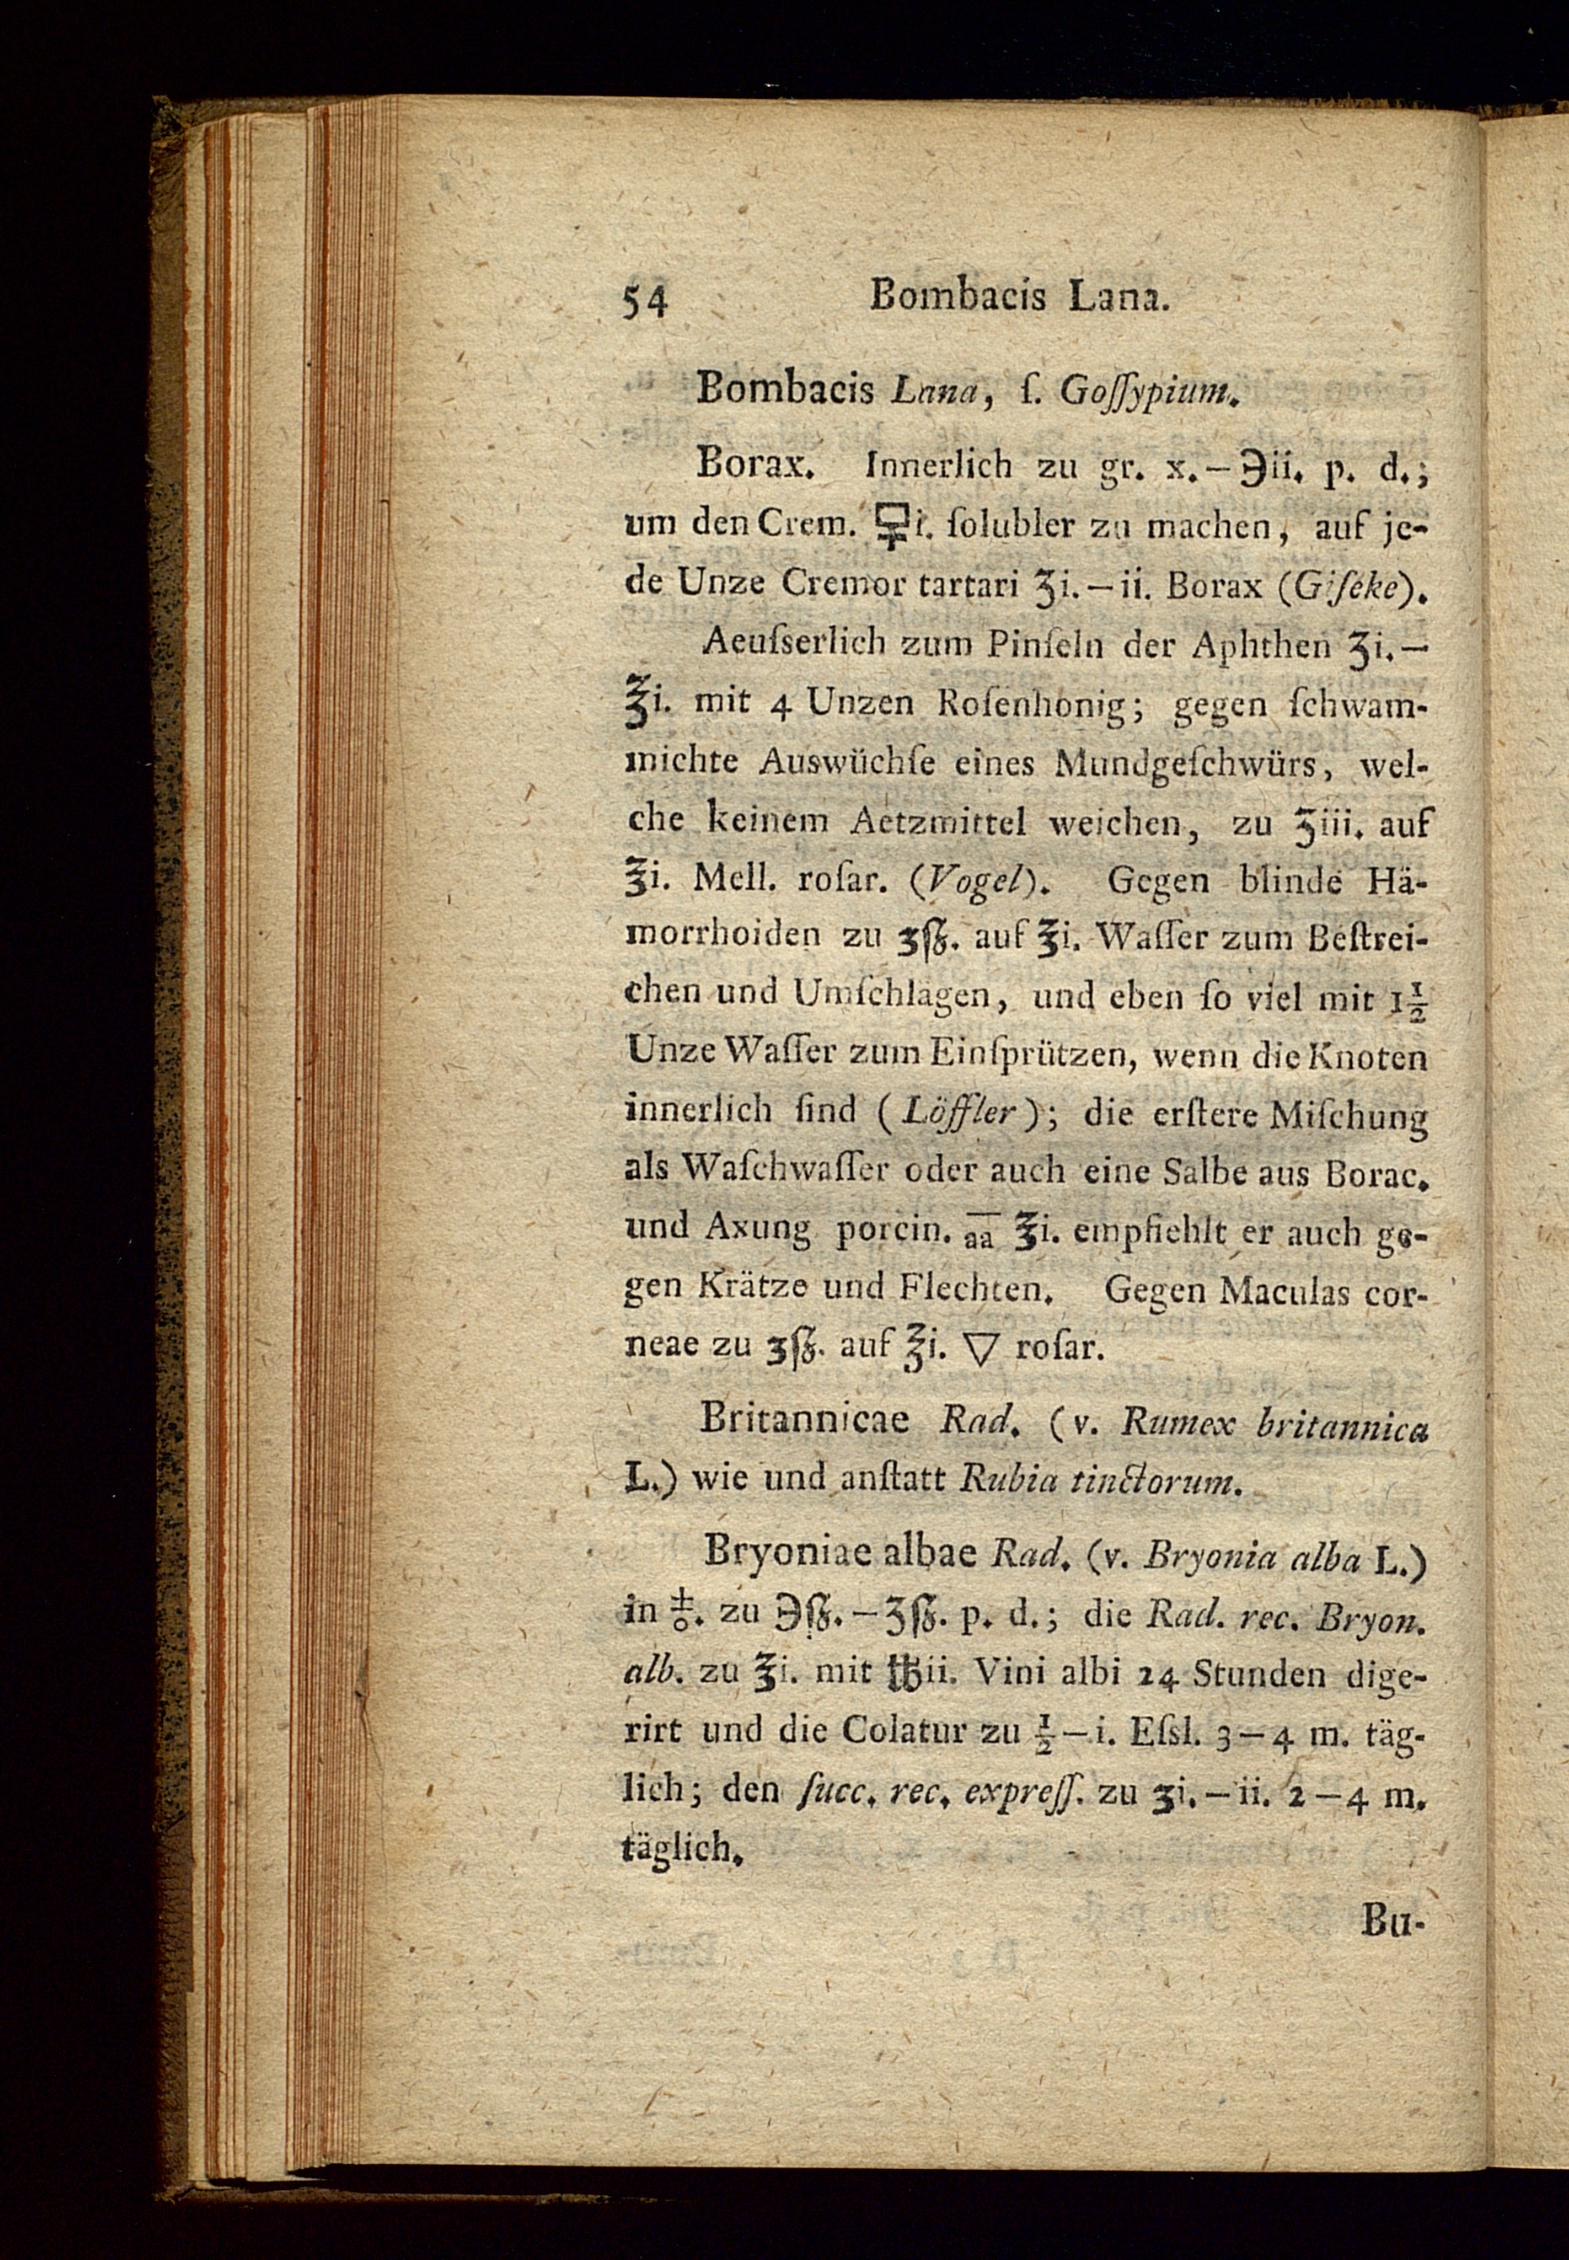 54 Bombacis Lana.
Bombacis Lana, ſ. Goſſypium.
Borax. Innerlich zu gr. x.—℈ii. p. d.;
um den Crem. 🜿i. ſolubler zu machen, auf je-
de Unze Cremor tartari ʒi.—ii. Borax (Giſeke).
Aeuſserlich zum Pinſeln der Aphthen ʒi.—
℥i. mit 4 Unzen Roſenhonig; gegen ſchwam-
michte Auswüchſe eines Mundgeſchwürs, wel-
che keinem Aetzmittel weichen, zu ʒiii. auf
℥i. Mell. roſar. (Vogel). Gegen blinde Hä-
morrhoiden zu ʒſʒ. auf ℥i. Waſſer zum Beſtrei-
chen und Umſchlagen, und eben ſo viel mit 1½
Unze Waſſer zum Einſprützen, wenn die Knoten
innerlich ſind (Löffler); die erſtere Miſchung
als Waſchwaſſer oder auch eine Salbe aus Borac.
und Axung porcin. a̅a̅ ℥i. empfiehlt er auch ge-
gen Krätze und Flechten. Gegen Maculas cor-
neae zu ʒſʒ. auf ℥i. ▽ roſar.
Britannicae Rad. (v. Rumex britannica
L.) wie und anſtatt Rubia tinctorum.
Bryoniae albae Rad. (v. Bryonia alba L.)
in 🜘. zu ℈ſʒ.—ʒſʒ. p. d.; die Rad. rec. Bryon.
alb. zu ℥i. mit ℔ii. Vini albi 24 Stunden dige-
rirt und die Colatur zu ½—i. Eſsl. 3—4 m. täg-
lich; den ſucc. rec. expreſſ. zu ʒi.—ii. 2—4 m.
täglich.
Bu-